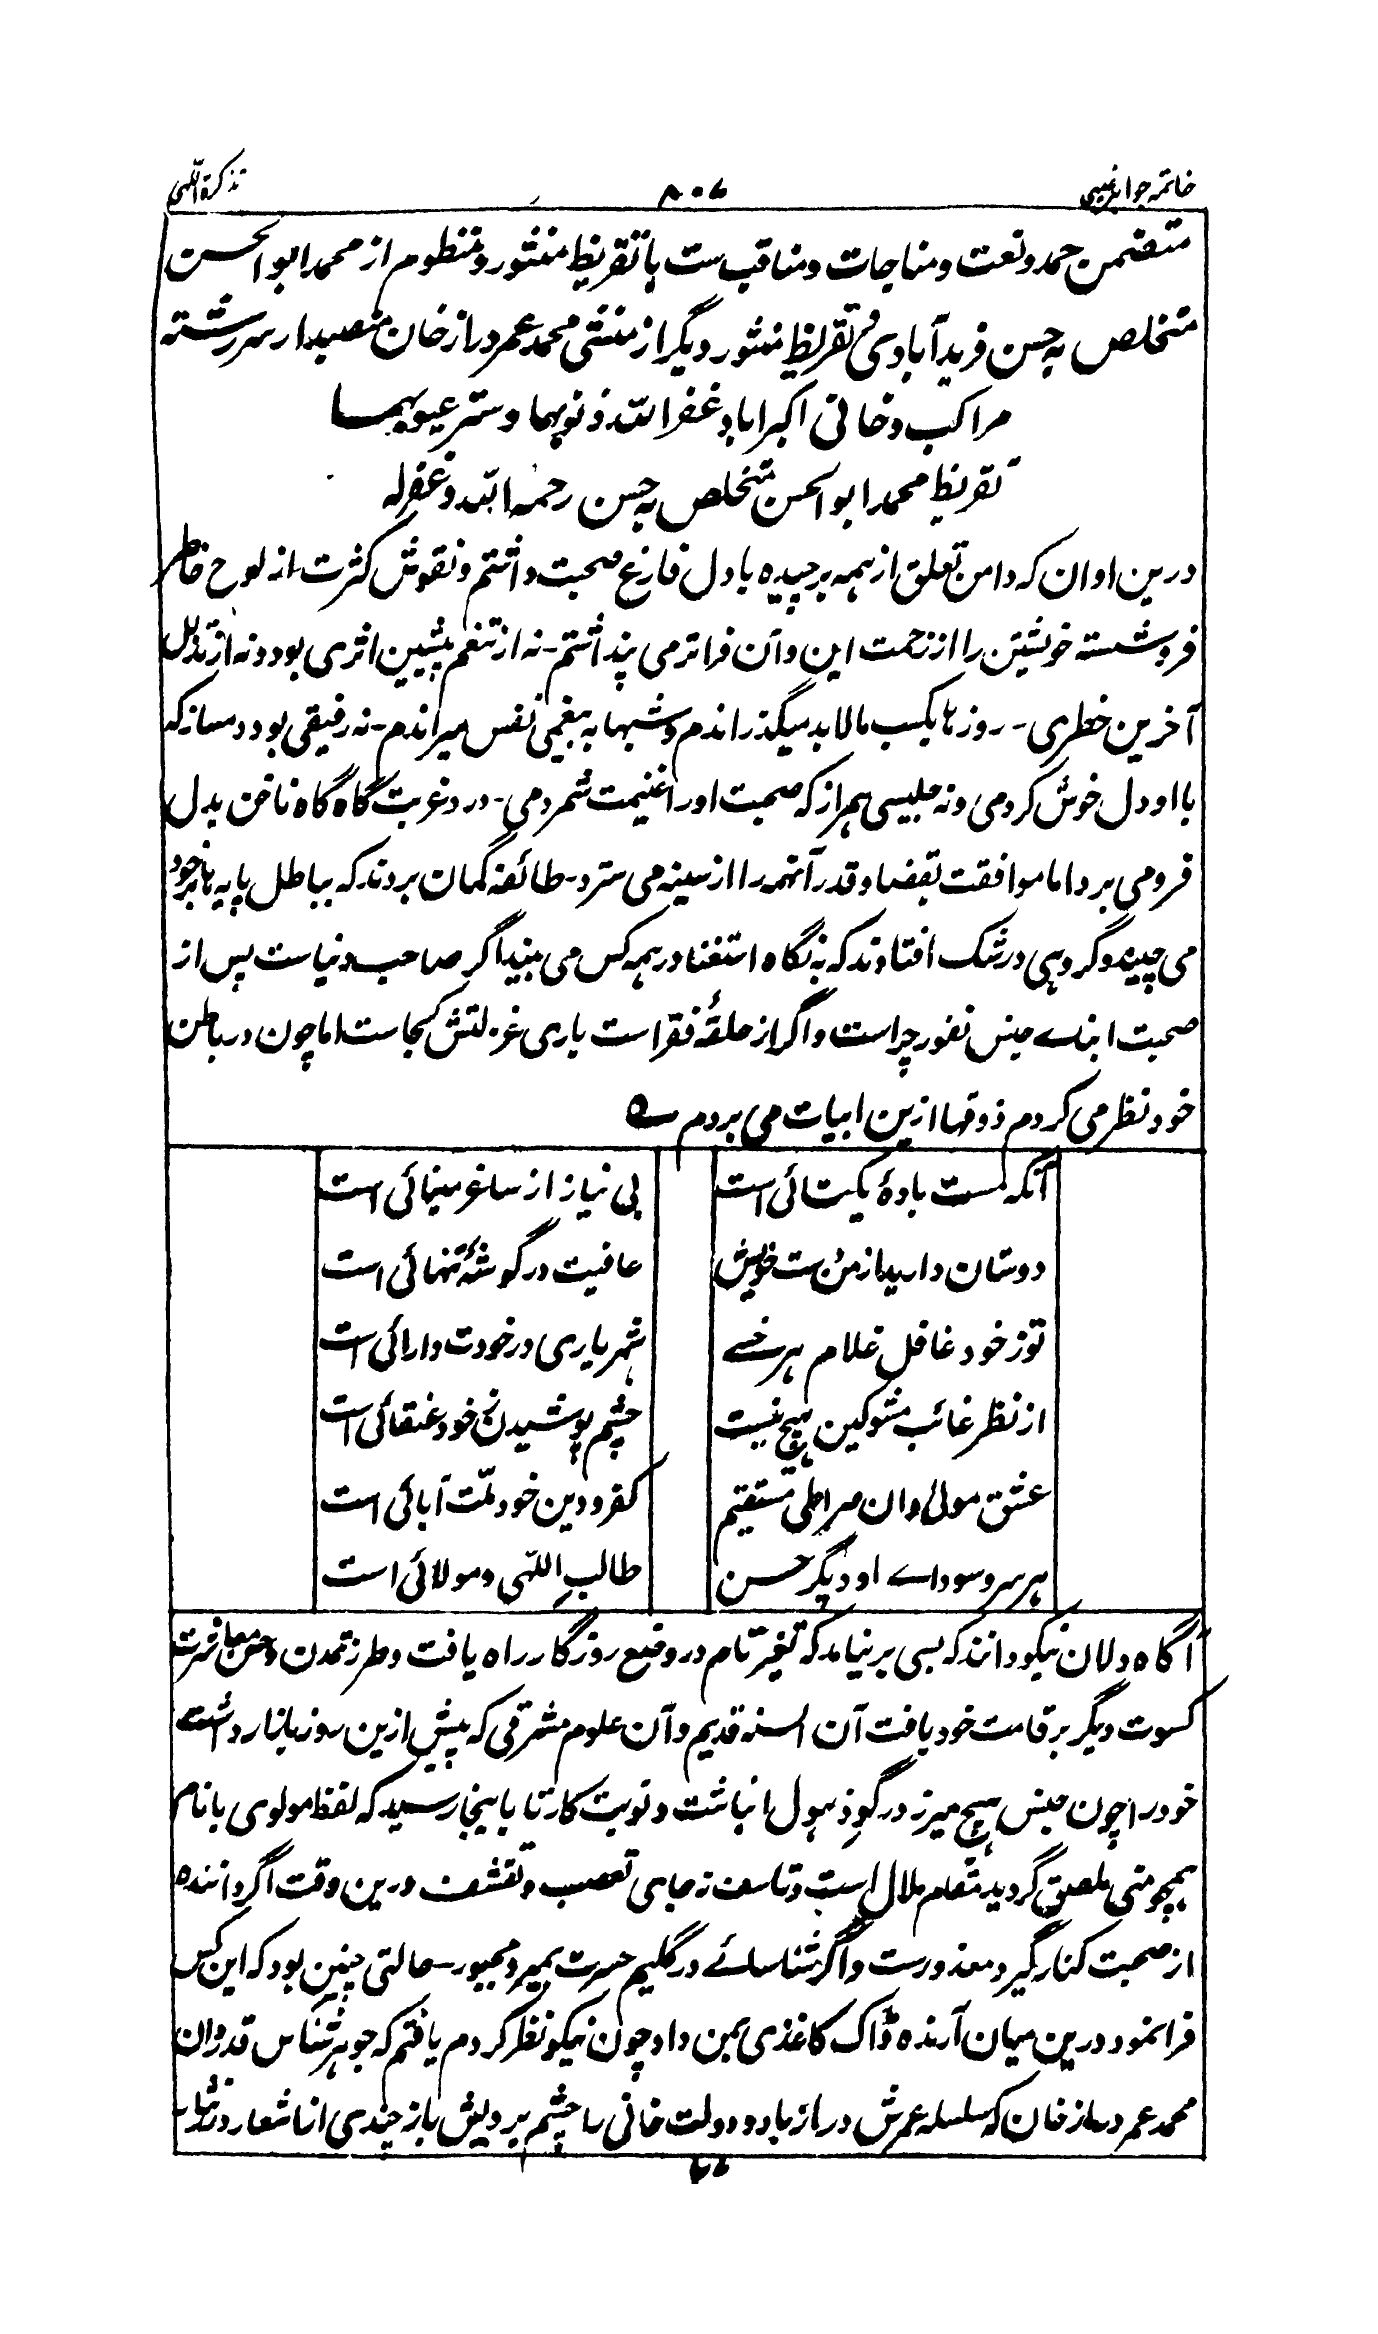 خاتمہ جواہر غیبی
۸۰۷
تذکرۃ اللہی
متضمن حمد و نعت و مناجات و مناقب ست با تقریظ منثور و منظوم از محمد ابو الحسن
متخلص بہ حسن فرید آبادی و تقریظ منثور دیگر از منشی محمد عمر دراز خان منصبدار سررشتہ
مراکب دخانی اکبراباد غفر اللہ ذنوبہما و ستر عیوبہما
تقریظ محمد ابو الحسن متخلص بہ حسن رحمہ اللہ و غفرلہ
درین اوان کہ دامن تعلق از ہمہ برچیدہ با دل فارغ صحبت داشتم و نقوش کثرت از لوح خاطر
فروشستہ خویشتن را از زحمت این و آن فراتر می پنداشتم ۔ نہ از تنعم پیشین اثری بود و نہ از تذلل
آخرین خطری ۔ روزہا بکسب مالابد میگذراندم و شبہا بہ بیغمی نفس میراندم ۔ نہ رفیقی بود دمساز کہ
با او دل خوش کردمی و نہ جلیسی ہمراز کہ صحبت او را غنیمت شمردمی ۔ درد غربت گاہ گاہ ناخن بدل
فرو می برد اما موافقت بقضا و قدر آنہمہ را از سینہ می سترد ۔ طائفہ گمان بردند کہ بباطل پایہ بر خود
می چیند و گروہی در شک افتادند کہ بہ نگاہ استغنا در ہمہ کس می بیند اگر صاحب دنیاست پس از
صحبت ابنائے جنس نفور چراست و اگر از حلقۂ فقراست باری عزلتش کجاست اما چون در باطن
خود نظر می کردم ذوقہا ازین ابیات می بردم ؎
آنکہ مست بادۂ یکتائی است
بی نیاز از ساغر مینائی است
دوستان دارید از من دست خویش
عافیت در گوشۂ تنہائی است
تو ز خود غافل غلام ہر خسے
شہریاری در خودت دارائی است
از نظر غائب مشو کین ہیچ نیست
چشم پوشیدن ز خود عنقائی است
عشق مولیٰ دان صراطِ مستقیم
کفر و دین خود ملّت آبائی است
ہر سر و سودائے او دیگر حسن
طالبِ اللّٰہی و مولائی است
آگاہ دلان نیکو دانند کہ بسی برنیامد کہ تغیر تام در وضع روزگار راہ یافت و طرز تمدن و حسن معاشرت
کسوت دیگر بر قامت خود بافت آن السنہ قدیم و آن علوم مشرقی کہ پیش ازین روز بازار داشت
خود را چون جنس ہیچ میرز در گو ذہول انباشت و نوبت کار تا باینجا رسید کہ لفظ مولوی با نام
ہمچو منی ملصق گردید مقام ملال است و تاسف نہ جای تعصب و تقشف درین وقت اگر دانندہ
از صحبت کنار گیرد معذورست و اگر شناسائے در گلیم حسرت بمیرد مجبور ۔ حالتی چنین بود کہ این کس
فرا نمود درین میان آرندہ ڈاک کاغذی بمن داد چون نیکو نظر کردم یافتم کہ جوہر شناس قدردان
محمد عمر دراز خان کہ سلسلہ عمرش دراز باد و دولت خانی را چشم برویش باز چندی از اشعار